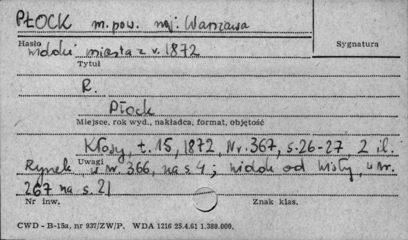 PŁOCK m. pow. woj: Warszawa
Hasło
widoki miasta z r. 1872
Sygnatura
Tytuł
R.
Płock
Miejsce, rok wyd., nakładca, format, objętość
Kłosy, t. 15, 1872, Nr. 367, s. 26-27, 2 il.
Uwagi
Rynek, w nr. 366, na s 4; widok od Wisły, w nr.
267 na s. 21
Nr inw.
Znak klas.
CWD - B-15a, nr 937/ZW/P. WDA 1216 25.4.61 1.388.000.